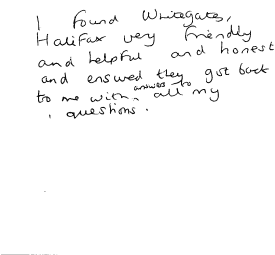 I found Whitegates,
Halifax very friendly
and helpful and honest
and ensured they got back
to me with answers to all my
questions.